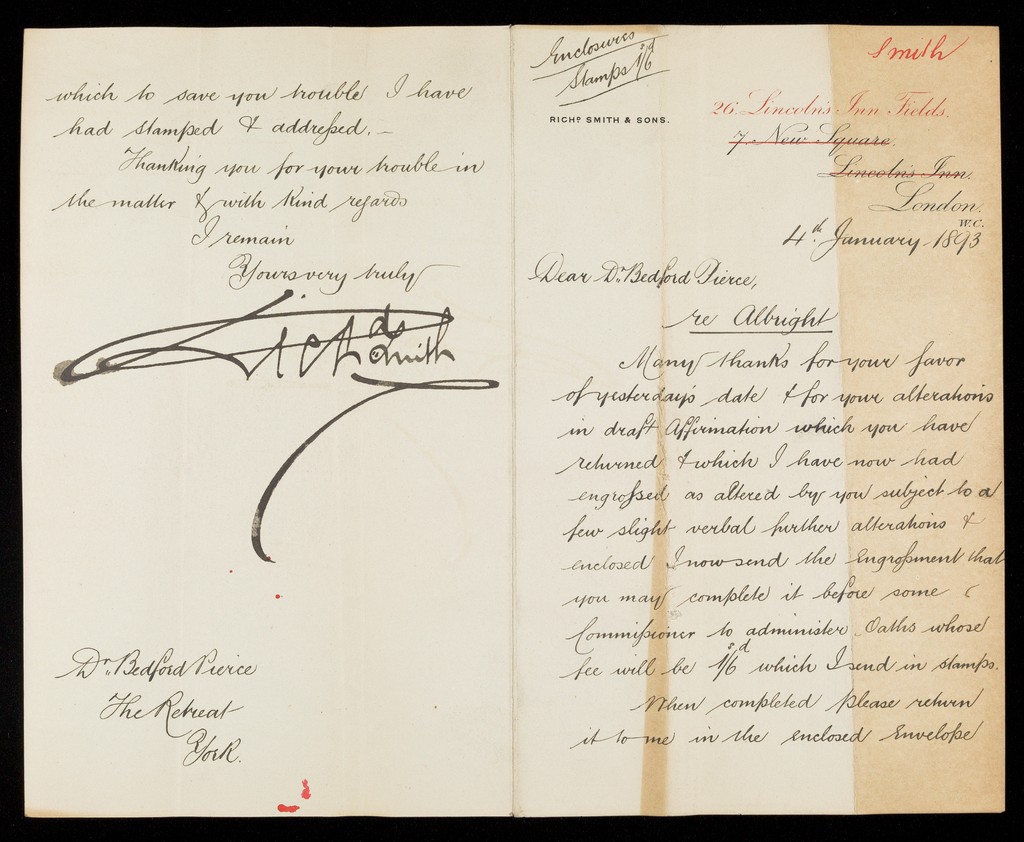 Enclosures
Stamps 1s/6d
Smith
RICHD. SMITH & SONS.
26. Lincoln's Inn Fields.
7. New Square.
Lincoln's Inn.
London.
W.C.
4th January 1893
Dear Dr. Bedford Pierce,
re Albright
Many thanks for your favor
of yesterday's date & for your alterations
in draft Affirmation which you have
returned & which I have now had
engrossed as altered by you subject to a
few slight verbal further alterations &
enclosed I now send the Engrossment that
you may complete it before some
Commissioner to administer Oaths whose
fee will be 1s/6d which I send in stamps.
When completed please return
it to me in the enclosed Envelope
which to save you trouble I have
had stamped & addressed. –
Thanking you for your trouble in
the matter & with kind regards
I remain
Yours very truly
Richd Smith
Dr. Bedford Pierce
The Retreat
York.